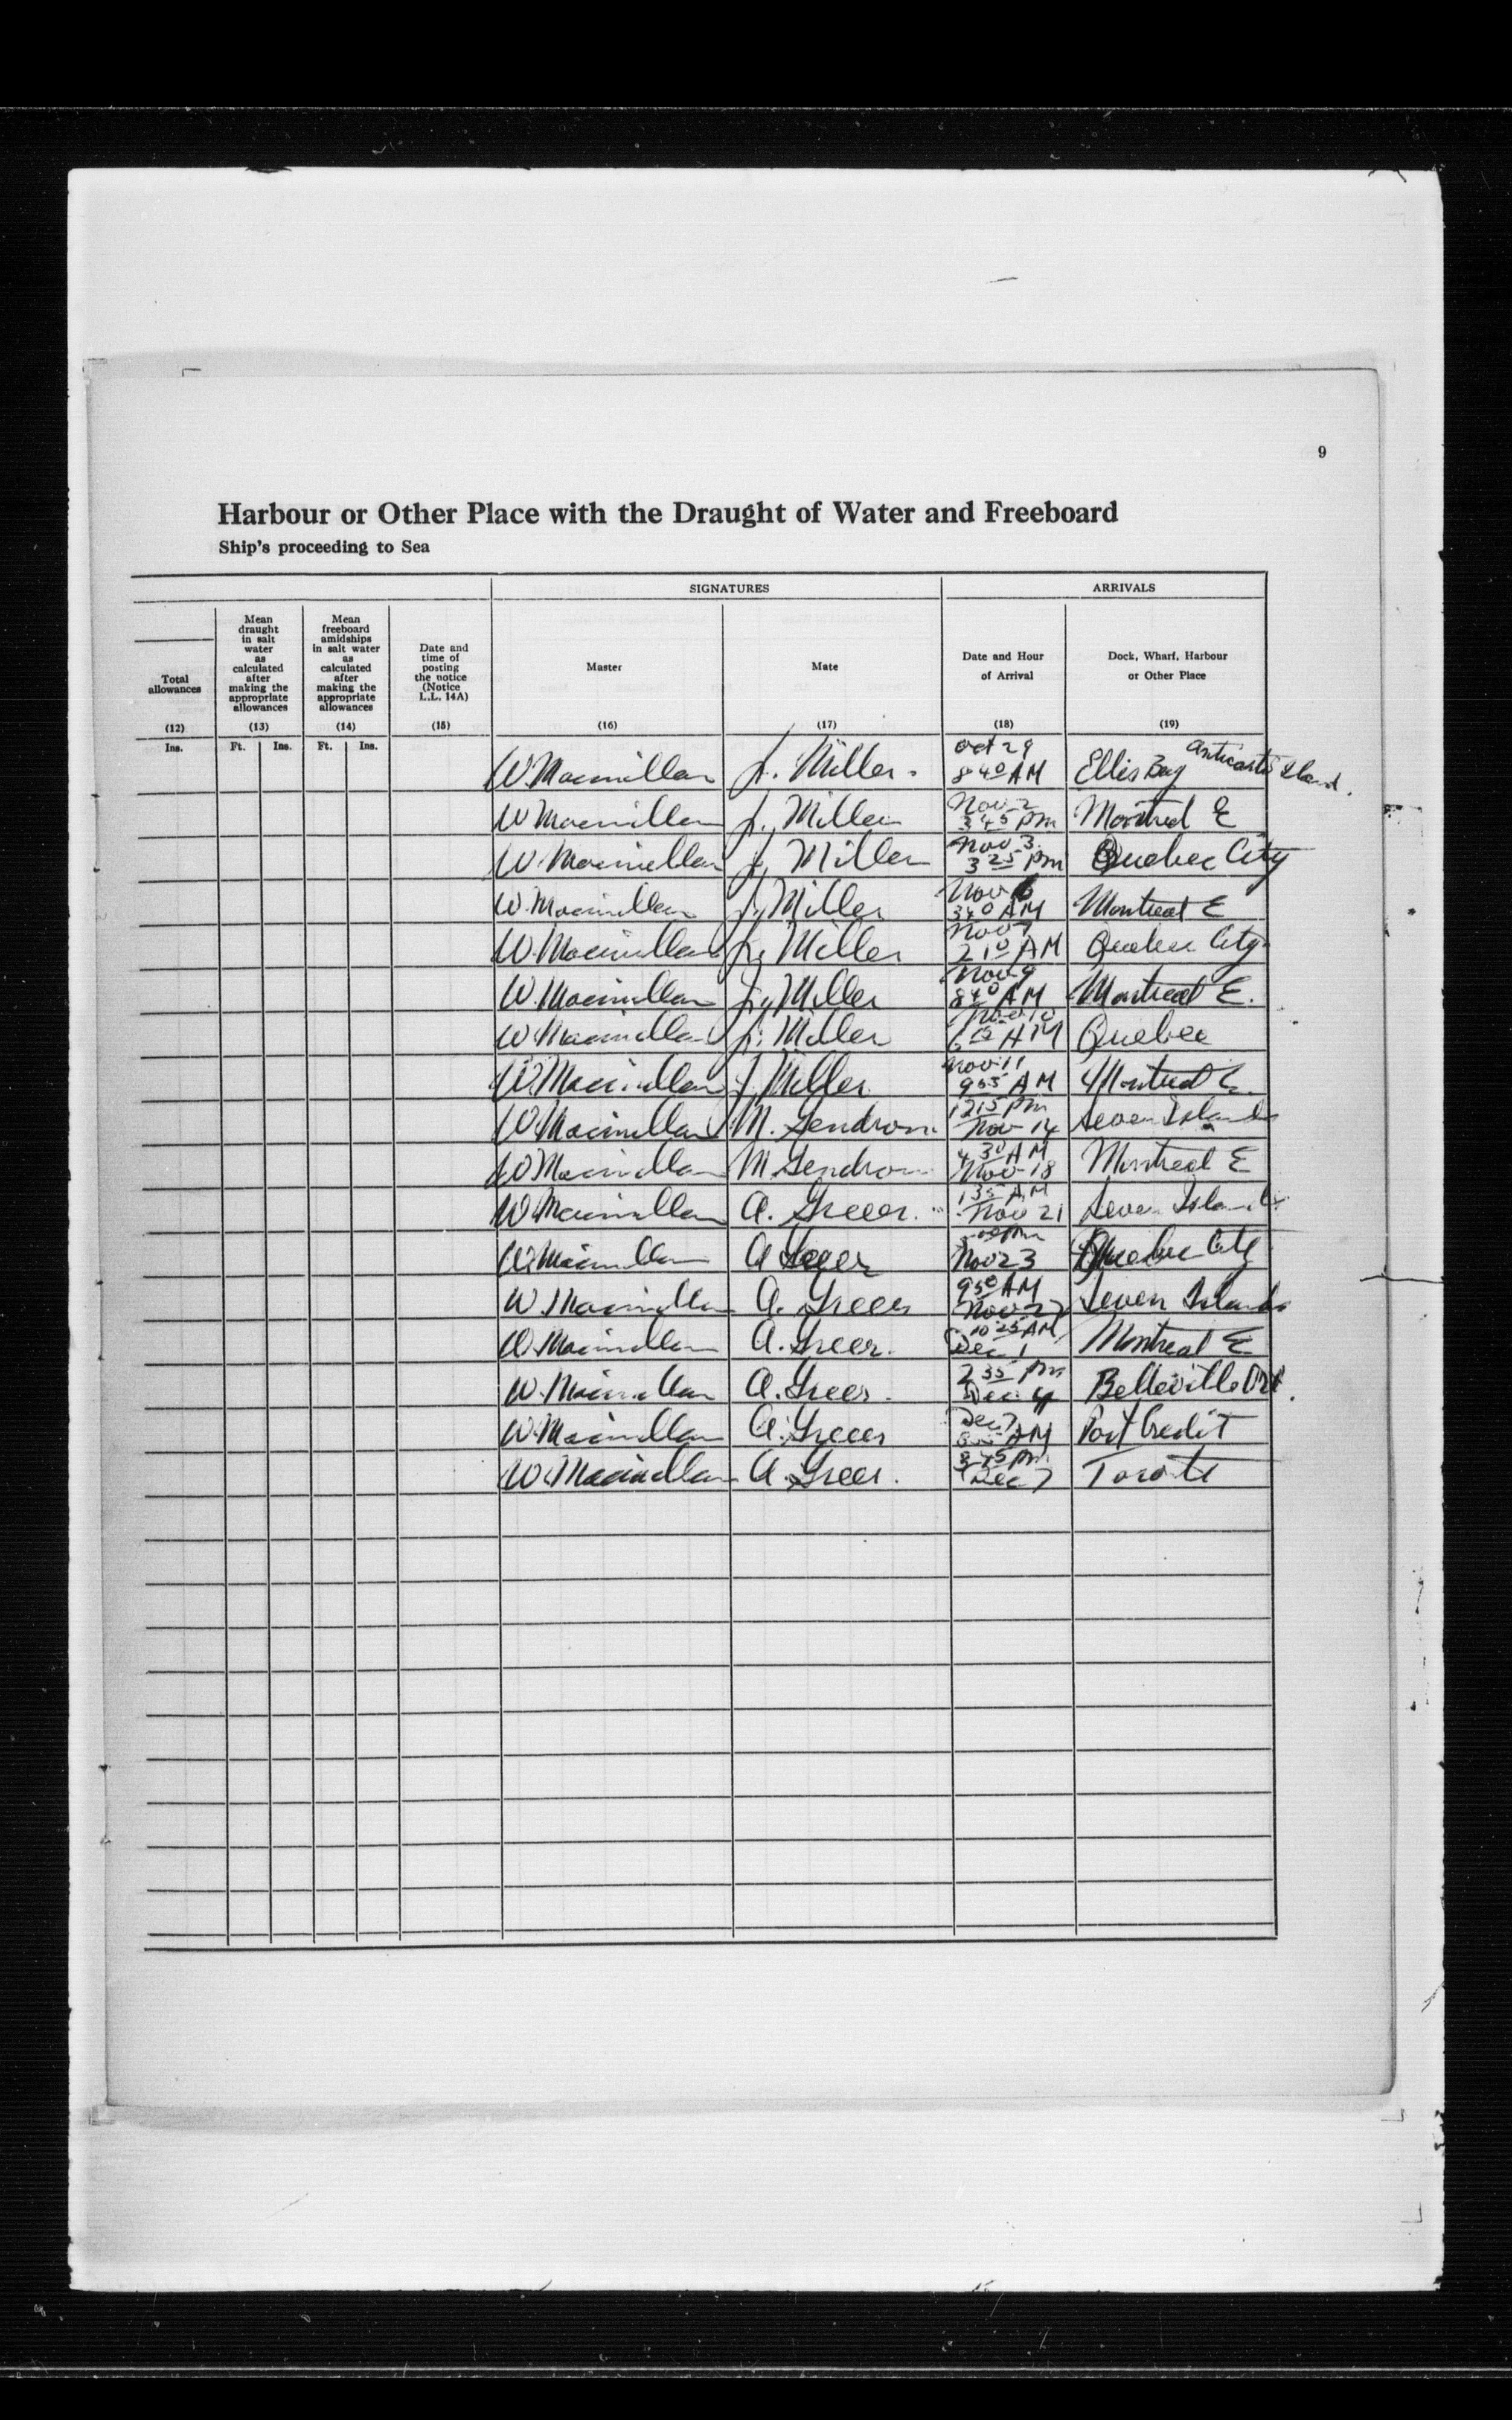 9
Harbour or Other Place with the Draught of Water and Freeboard
Ship's proceeding to Sea
SIGNATURES ARRIVALS
Total allowances
Mean draught in salt water as calculated after making the appropriate allowances
Mean freeboard amidships in salt water as calculated after making the appropriate allowances
Date and time of posting the notice (Notice L.L. 14A)
Master
Mate
Date and Hour of Arrival
Dock, Wharf, Harbour or Other Place
(12) (13) (14) (15) (16) (17) (18) (19)
Ins. Ft. Ins. Ft. Ins.
W. Macmillan J. Miller. Oct 29 8 40 AM Ellis Bay Anticosti Island.
W Macmillan J. Miller Nov 2 3 45 PM Montreal E
W. Macmillan J. Miller Nov 3. 3 25 PM Quebec City
W. Macmillan J. Miller Nov 6 3 40 AM Montreal E
W. Macmillan J. Miller Nov 7 2 10 AM Quebec City
W. Macmillan J. Miller Nov 9 8 40 AM Montreal E.
W. Macmillan J. Miller Nov 10 AM Quebec
W. Macmillan J. Miller Nov 11 9 55 AM Montreal E.
W. Macmillan M. Gendron. 12 15 PM Nov 14 Seven Islands
W Macmillan M Gendron 4 30 AM Nov 18 Montreal E
W. Macmillan A. Greer. 1 35 AM Nov 21 Seven Islands
W. Macmillan A Greer PM Nov 23 Quebec City
W. Macmillan A. Greer 9 50 AM Nov 27 Seven Islands
W. Macmillan A. Greer. 10 25 AM Dec 1 Montreal E
W. Macmillan A. Greer. 2 35 PM Dec 4 Belleville Ont.
W. Macmillan A. Greer Dec 7 AM Port Credit
W. Macmillan A. Greer. 3 45 PM Dec 7 Toronto